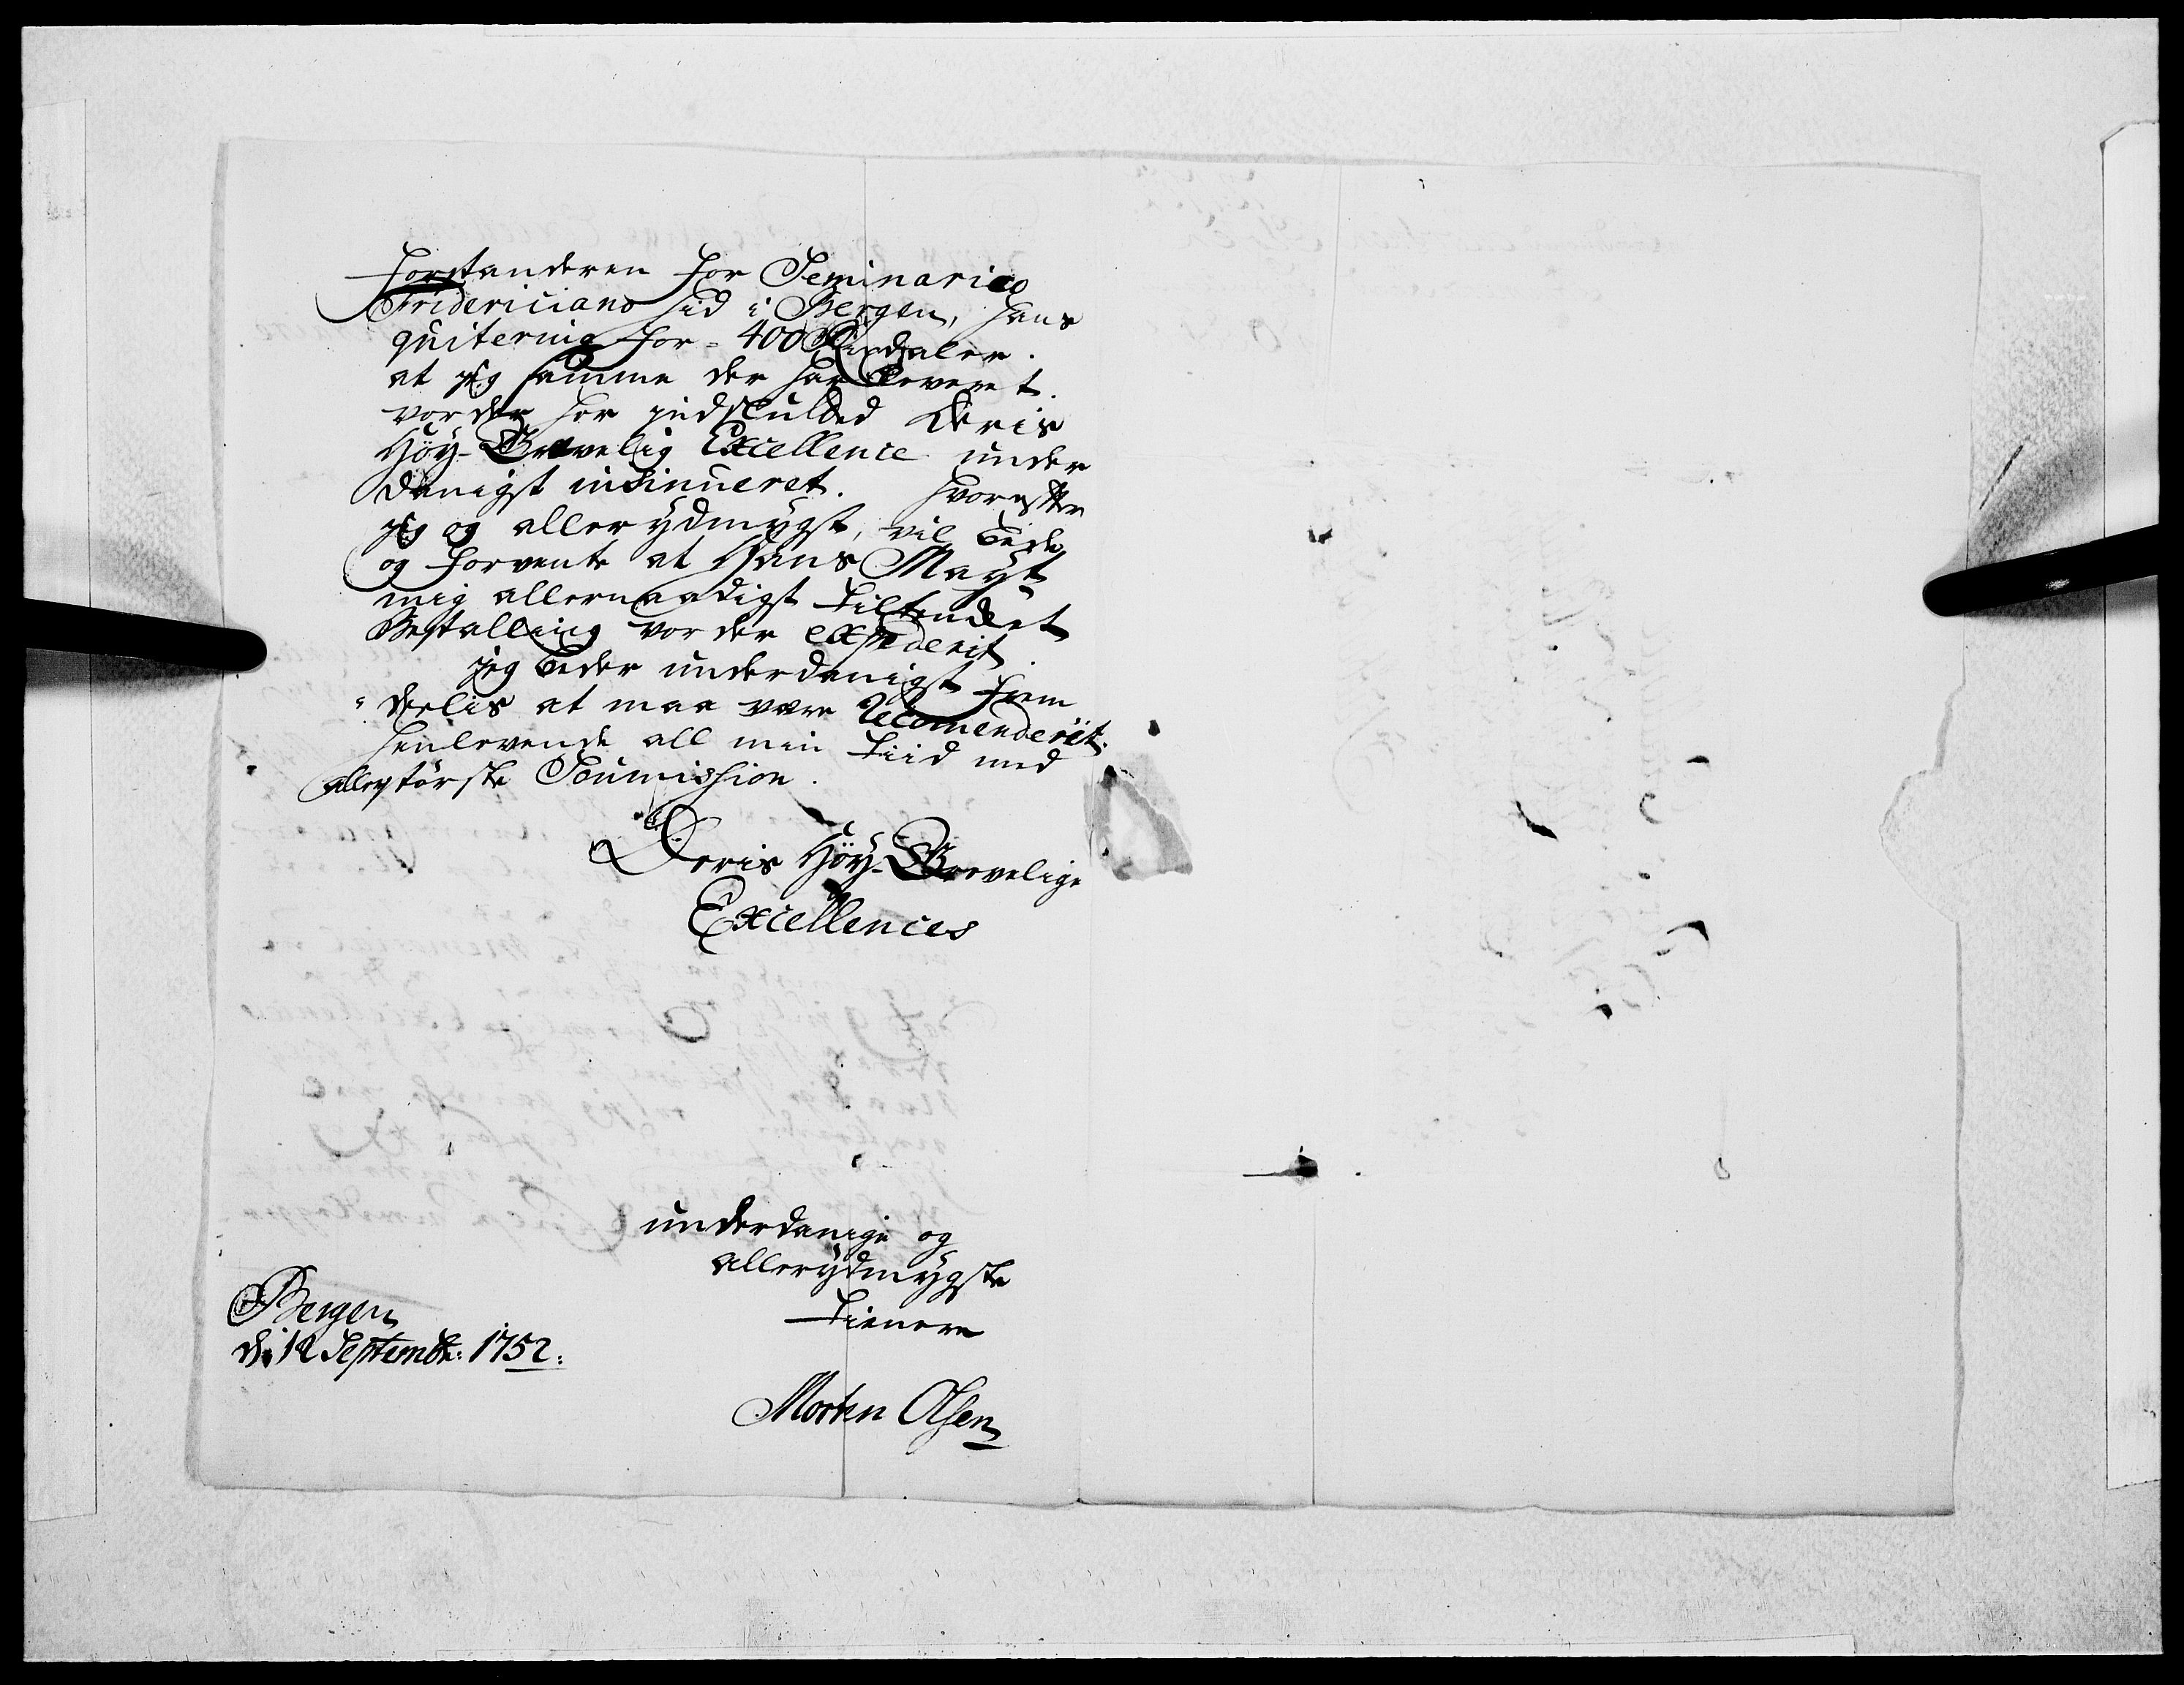 Forstanderen for Seminario
Fridericiano hid i Bergen, hans
quitering for = 400 Rixdaler.
at jeg samme der har leveret.
vorder her indslutted Deris
Höy-Grevelig Excellence under
danigst insinueret. hvorefter
jeg og allerydmygst, vil bede
og forvente at Hans Mayt
mig allernaadigst tiltendet
Bestalling vorder expederit.
jeg beder underdanigst frem
deelis at maa være Recomenderit.
henlevende all min tiid med
allerstörste Soumission.
Deris Höy-Grevelige
Excellences
underdanige og
allerydmygste
tienere
Bergen
d: 12 Septembr: 1752:
Morten Olsen